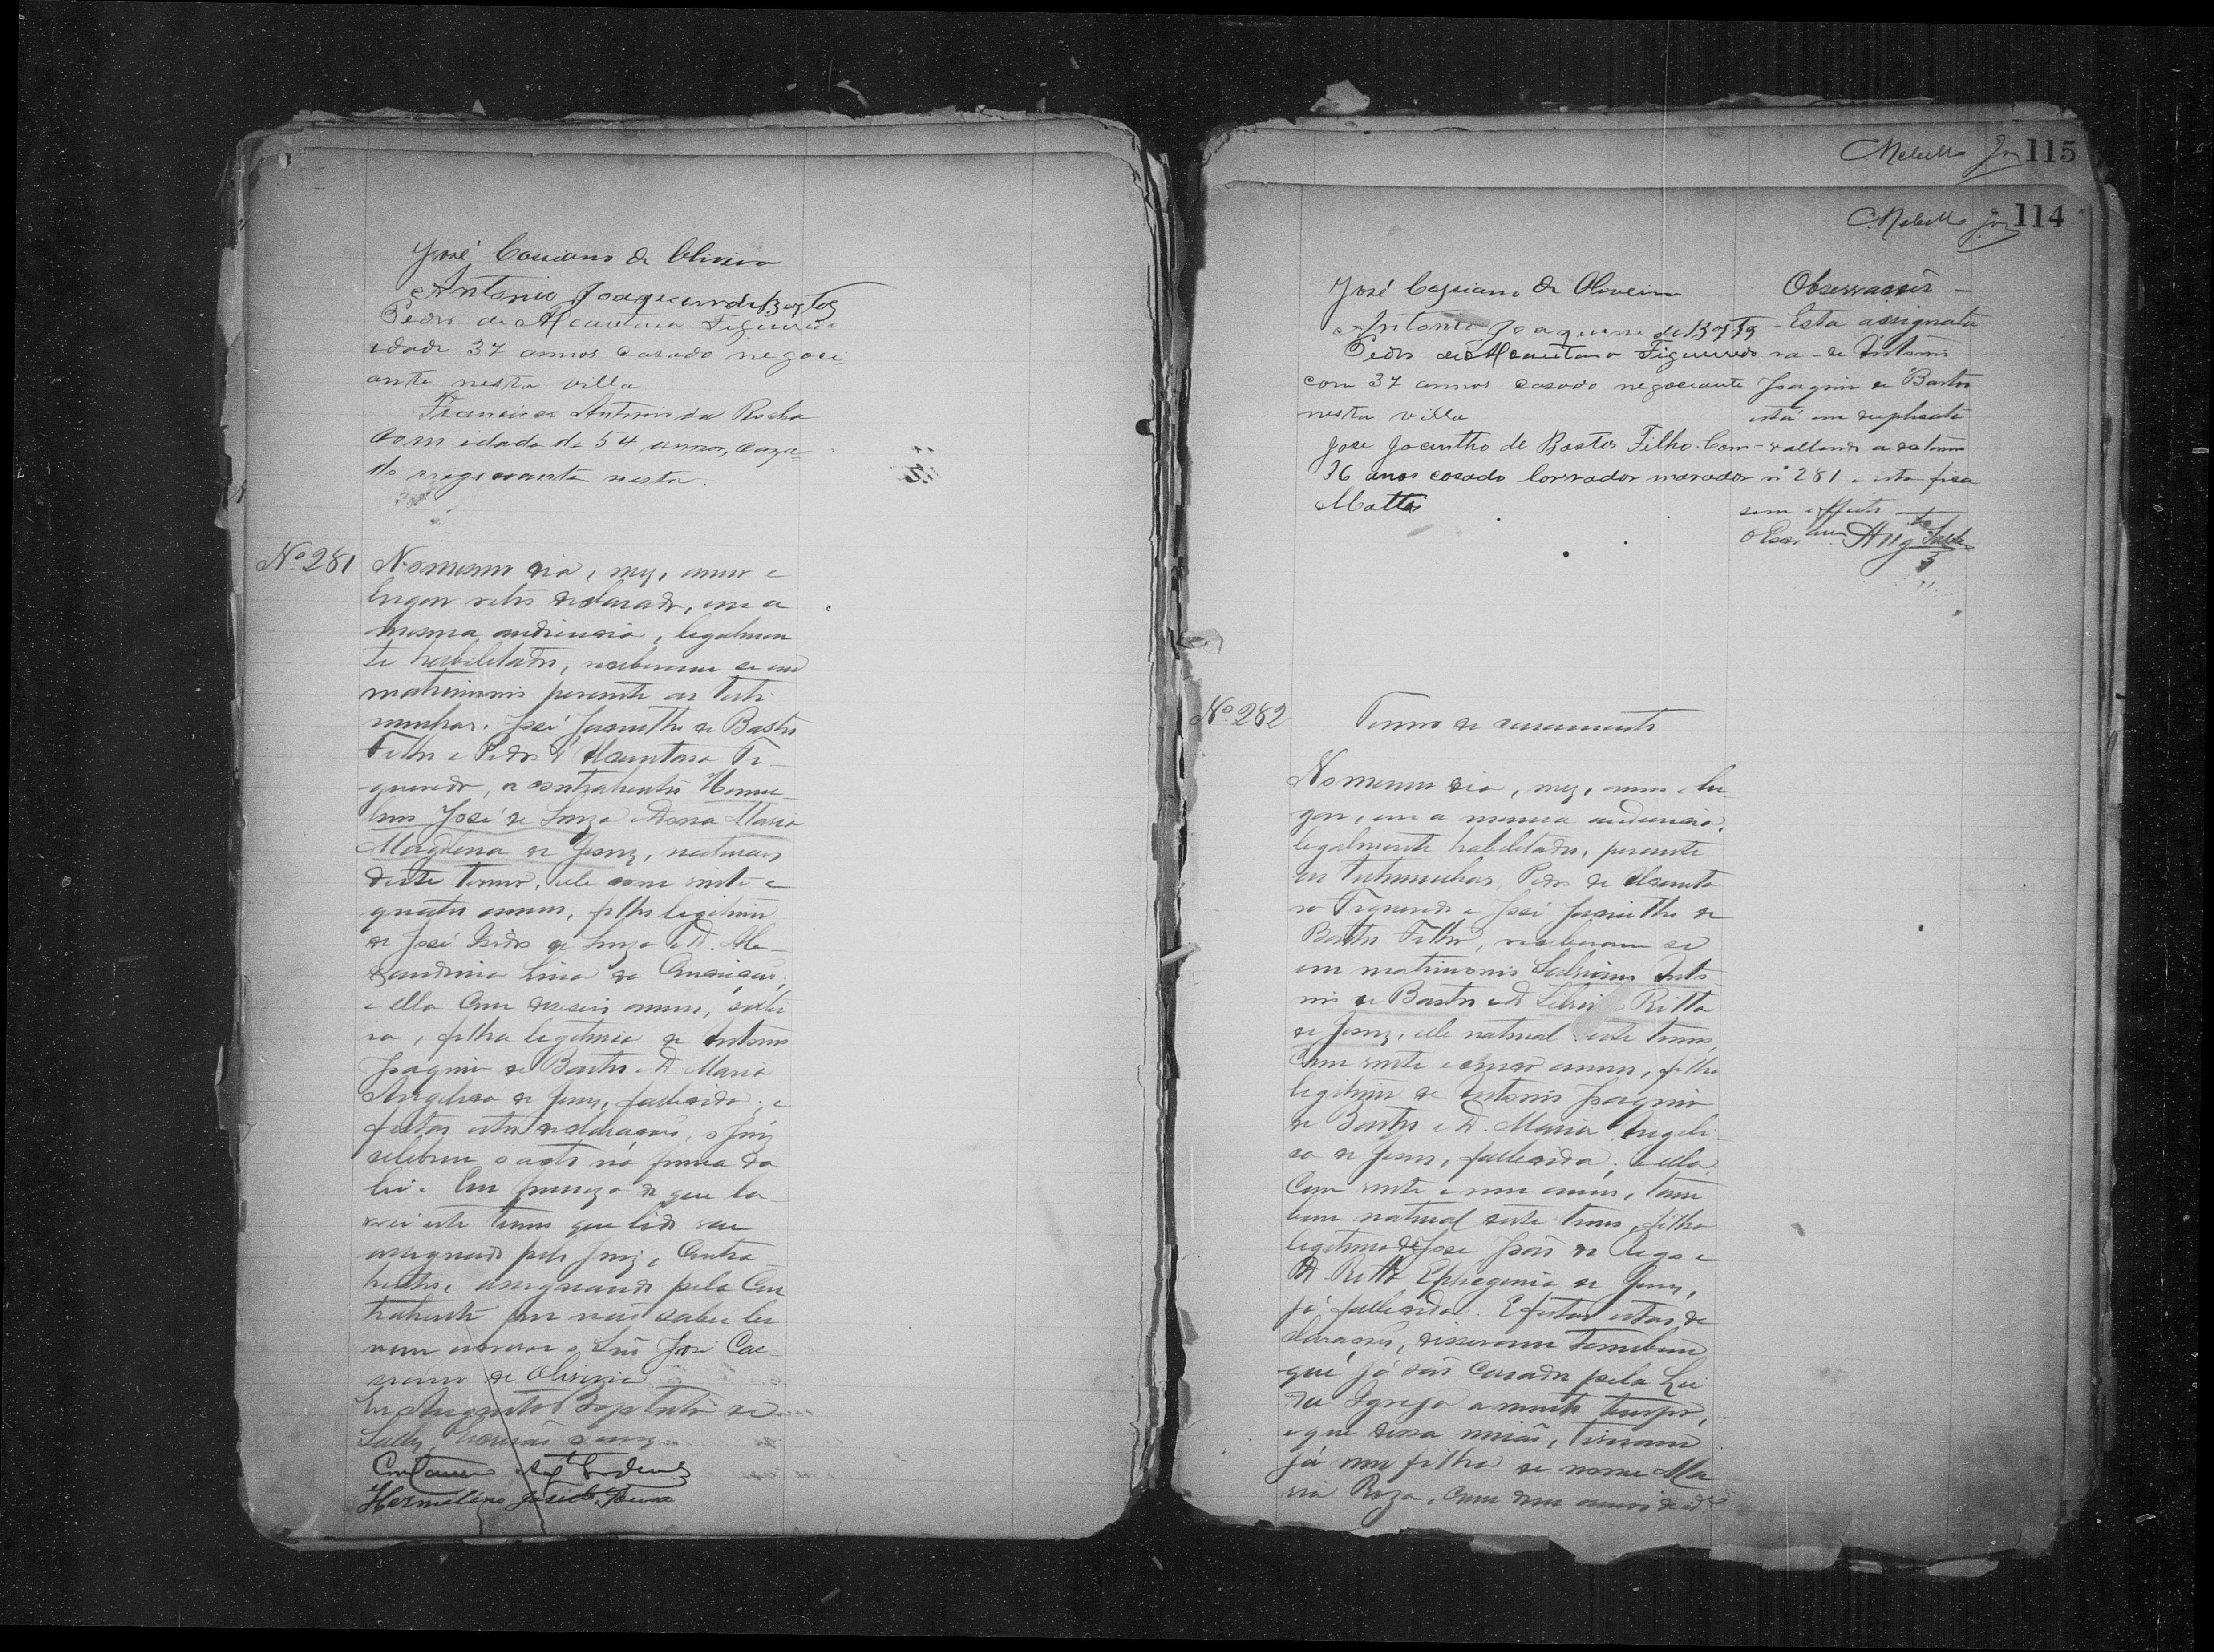 José Cassiano de Oliveira
Antonio Joaquim de Bastos
Pedro de Alcantara Figueiredo
idade 37 annos casado negoci-
ante nesta villa
Francisco Antonio da Rocha
com idade de 54 annos, caza=
do negociante nesta.
Nº 281
No mesmo dia, mez, anno e
lugar retro declarado, em a
mesma audiencia, legalmen
te habilitados, receberam se em
matrimonio perante as teste
munhas, José Jacintho de Bastos
Filho e Pedro d'Alcantara Fi-
gueredo, os contrahentes Herme-
lino José de Souza e Dona Maria
Magdlena de Jesus, naturaes
deste termo, elle com vinte e
quatro annos, filho legitimo
de José Izidro de Souza e D. Ale-
xandrina Lina da Conceição,
e ella com deseseis annos, soltei
ra, filha legitima de Antonio
Joaquim de Bastos e D. Maria
Angelica de Jesus, fallecida; e
feitas estas declarações, o Juiz
celebrou o acto na forma da
lei. Em firmeza do que la-
vrei este termo que lido vae
assignado pelo Juiz, Contra
hentes, assignando pela Con
trahente por não saber ler
nem escrever o Snr José Cas-
siano de Oliveira
Eu Augusto Baptista de
Salles, Escrivão o escrevy
Hermelino José de Souza
115
114
José Cassiano de Oliveira
Antonio Joaquim de Bastos
Pedro de Alcantara Figueiredo
com 37 annos casado negociante
nesta villa
José Jacintho de Bastos Filho. Com
36 anos casado lavrador morador
Mattas
Observações -
- Esta assignatu
ra - de Antonio
Joaquim de Bastos
está em duplicata
- valendo a do termo
nº 281 e esta fica
sem effeito
o Escr.am Aug.to Salles
Nº 282
Termo de casamento
No mesmo dia, mez, anno e lu
gar, em a mesma audiencia,
legalmente habilitados, perante
as testemunhas, Pedro de Alcanta
ra Figueredo e José Jacintho de
Bastos Filho, receberam se
em matrimonio Salviano Anto
nio de Bastos e D. Ritta
de Jesus, elle natural deste termo,
com vinte e cinco annos, filho
legitimo de Antonio Joaquim
de Bastos e D. Maria Angeli-
ca de Jesus, fallecida; e ella
com vinte e um annos, tam
bem natural deste termo, filha
legitima de José João do Rego e
D. Ritta Ephigenia de Jesus,
já fallecida. E feitas estas de
clarações, disseram tambem
que já são casados pela Lei
da Igreja a muito tempo,
e que dessa união, tiveram
já um filha de nome Ma
ria Roza, com dous annos de id.e